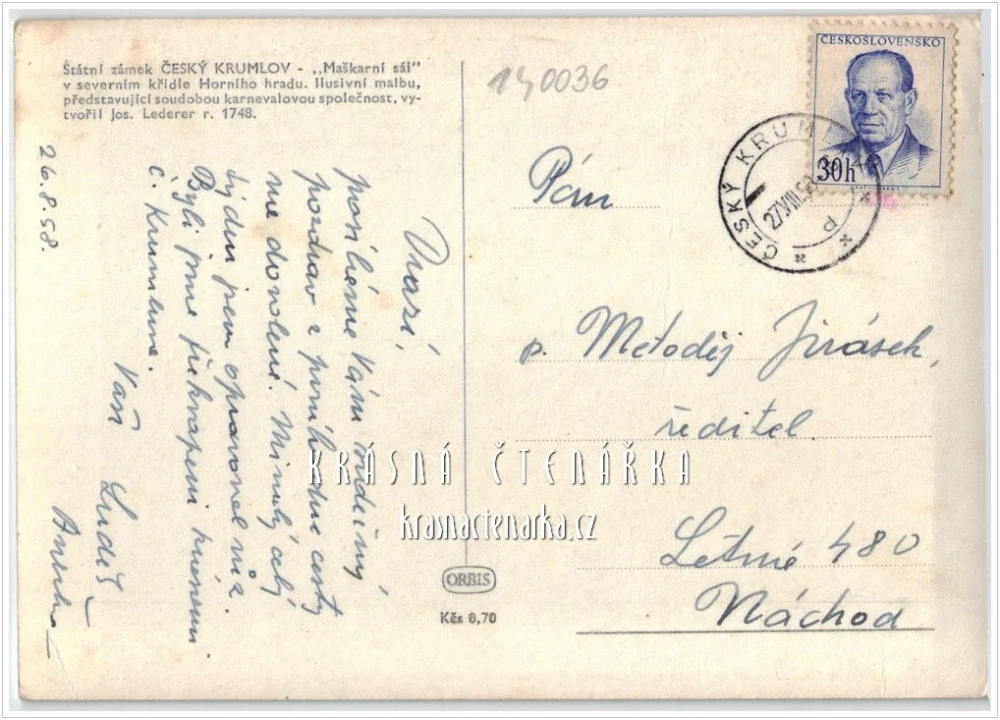 Státní zámek ČESKÝ KRUMLOV - „Maškarní sál"
v severním křídle Horního hradu. Ilusivní malbu,
představující soudobou karnevalovou společnost, vy-
tvořil Jos. Lederer r. 1748.
140036
ČESKOSLOVENSKO
30h
ČESKÝ KRUM
27.VIII.5
26.8.58.
Drazí,
posíláme Vám srdečný
pozdrav z prvního dne cesty
na dovolené. Minulý celý
týden jsem opravoval vůz.
Byli jsme překvapeni krásou
Č. Krumlova.
Vaši Luděk
Pán
p. Metoděj Jirásek,
ředitel.
Letná 480
Náchod
KRÁSNÁ ČTENÁŘKA
krasnactenarka.cz
ORBIS
Kčs 0,70